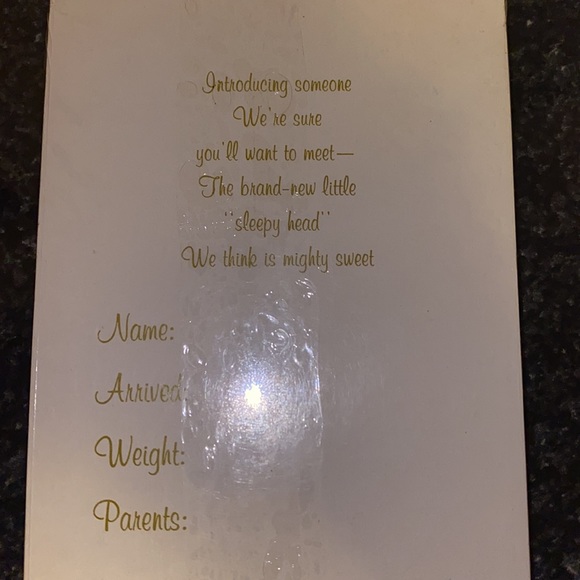 Introducing someone
We're sure
you'll want to meet—
The brand-new little
"sleepy head"
We think is mighty sweet
Name:
Arrived:
Weight:
Parents: